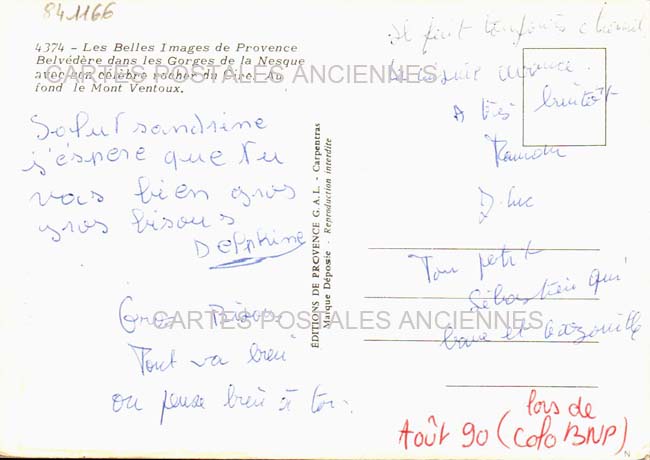 84.1166
4374 - Les Belles Images de Provence
Belvédère dans les Gorges de la Nesque
avec son célèbre rocher du Cire. Au
fond le Mont Ventoux.
CARTES POSTALES ANCIENNES
Salut sandrine
j'éspere que tu
vas bien gros
gros bisous
Delphine
Gros Bisous
Tout va bien
on pense bien à toi.
ÉDITIONS DE PROVENCE G.A.L. - Carpentras
Marque Déposée - Reproduction interdite
Il fait toujours
A très bientôt
J. Luc
Ton petit
Sébastien qui
bave et gazouille
CARTES POSTALES ANCIENNES
lors de
Août 90 (Colo BNP)
N